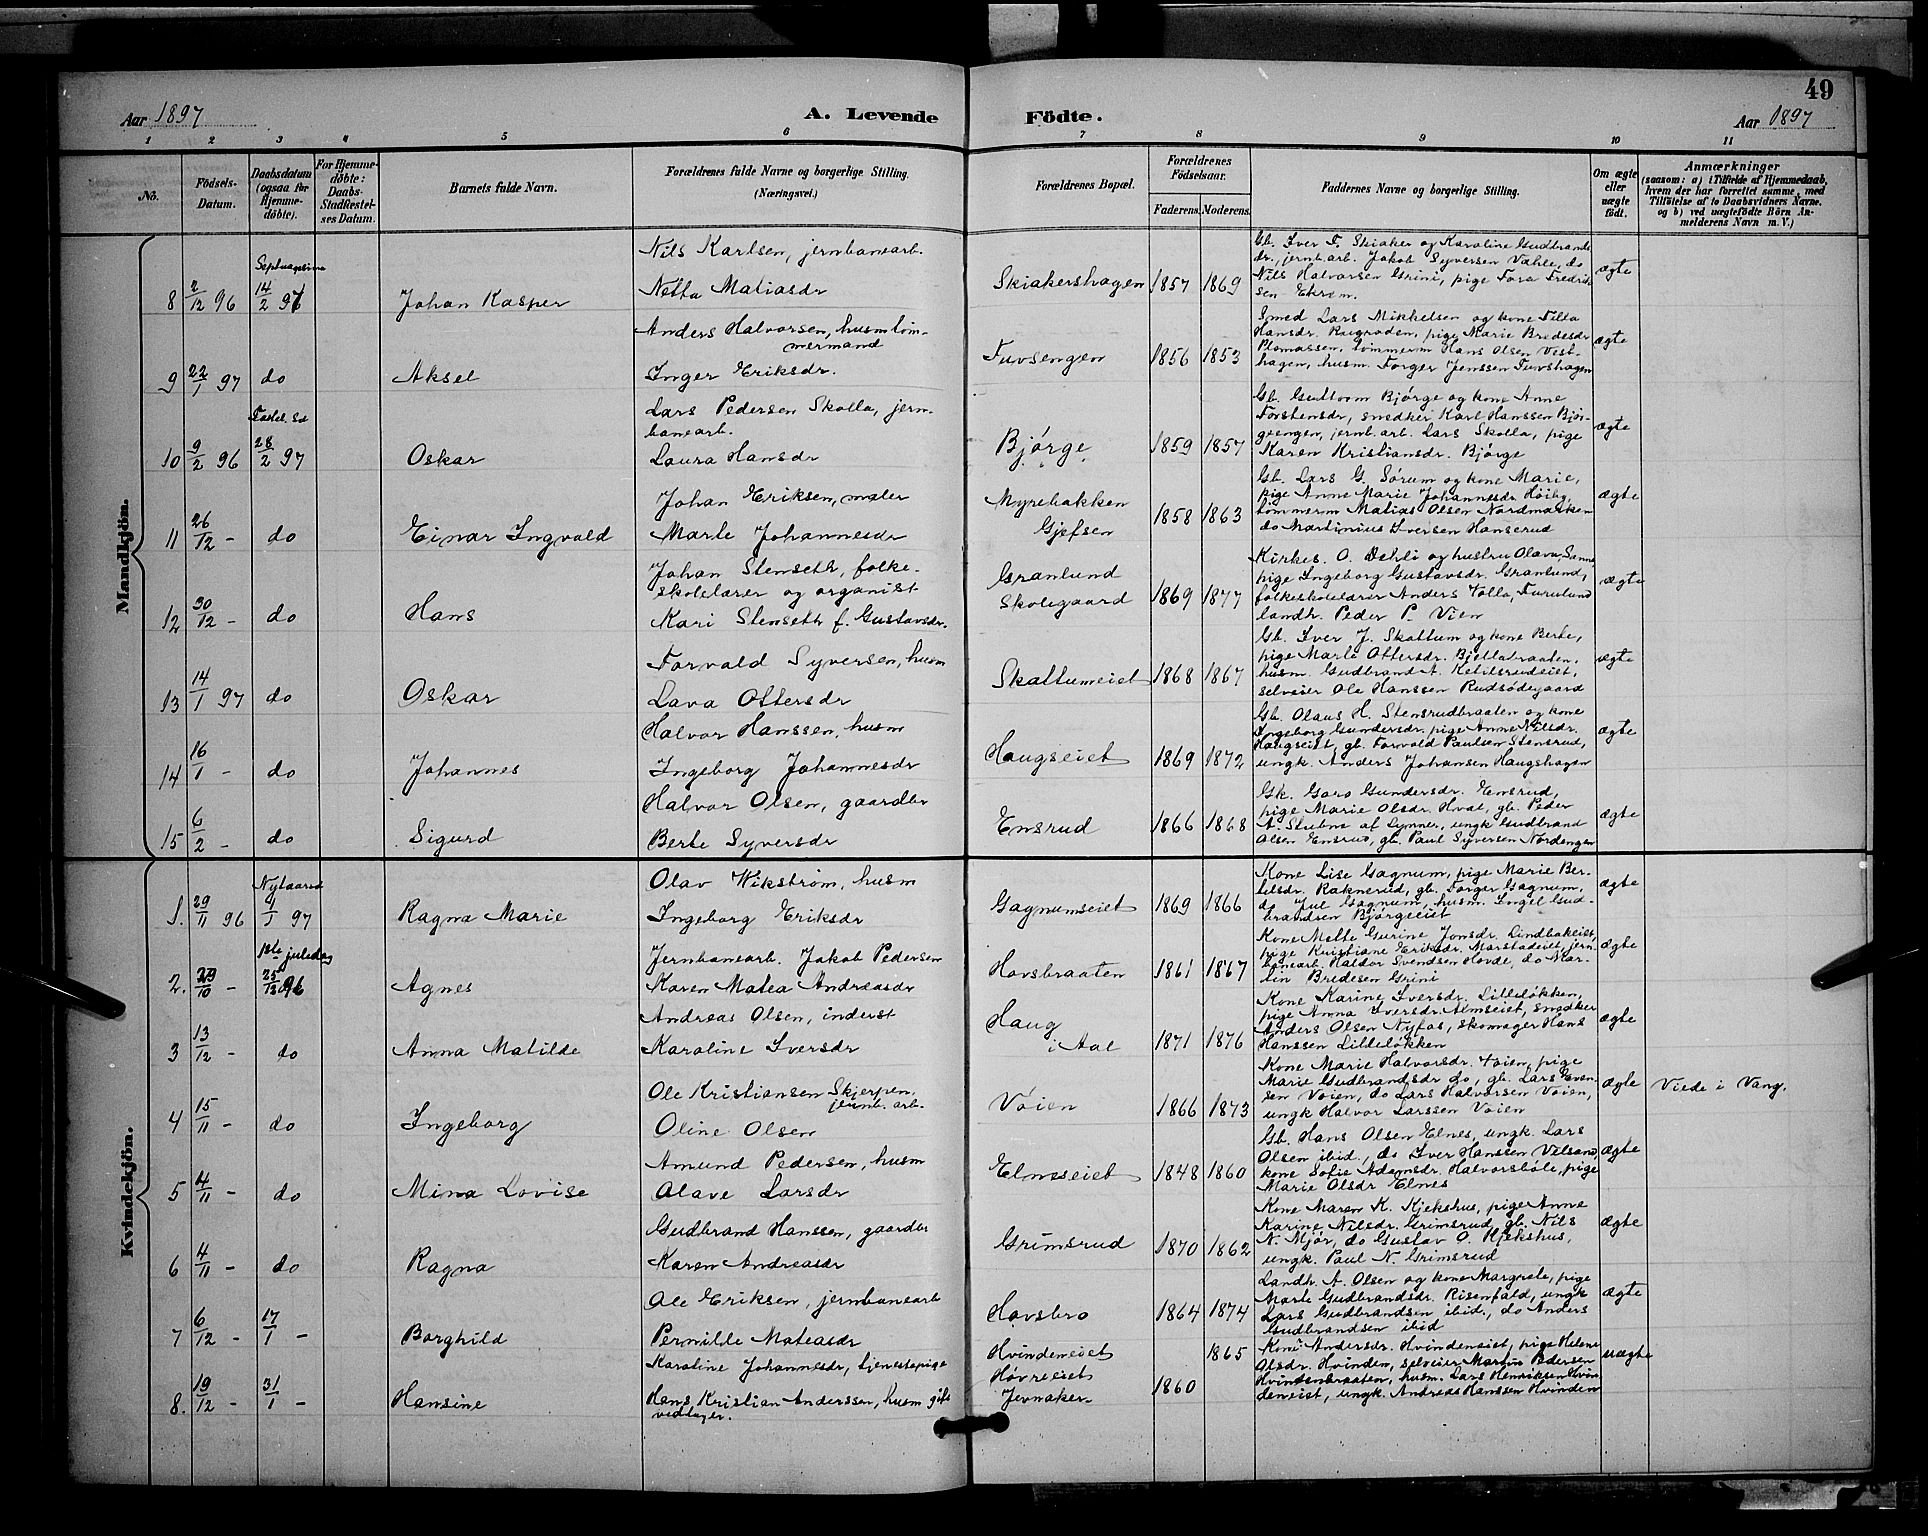 49
Aar 1897
A. Levende Födte.
Aar 1897
1 2 3 4 5 6 7 8 9 10 11
No.
Födsels-Datum.
Daabsdatum (ogsaa for Hjemme-döbte).
For Hjemme-döbte: Daabs-Stadfæstel-ses Datum.
Barnets fulde Navn.
Forældrenes fulde Navne og borgerlige Stilling.
(Næringsvei.)
Forældrenes Bopæl.
Forældrenes Födselsaar.
Faderens. Moderens.
Faddernes Navne og borgerlige Stilling.
Om ægte eller uægte födt.
Anmærkninger
(saasom: a) i Tilfælde af Hjemmedaab, hvem der har forrettet samme, med Tilföielse af to Daabsvidners Navne. og b) ved uægtefödte Börn An-melderens Navn m. V.)
Mandkjön.
8 2/12 96 Septuagesima 14/2 97 Johan Kasper
Nils Karlsen, jernbanearb.
Netta Matiasdr
Skiakershagen 1857 1869
Gb. Iver T. Skiaker og Karoline Gudbrands
dr., jernb.arb. Jakob Syversen Vahle, do
Nils Halvorsen Grini, pige Tora Fredrik
sen Ekrem.
ægte
9 22/1 97 do Aksel
Anders Halvorsen, husm töm-
mermand
Inger Eriksdr.
Tuvsengen 1856 1853
Smed Lars Mikkelsen og kone Tilla
Hansdr. Rugroden, pige Marie Bredesdr
Plomassen, tömmerm Hans Olsen Vest-
hagen, husm. Torger Jenssen Tuvshagen
ægte
10 9/2 96 Fastel. Sø 28/2 97 Oskar
Lars Pedersen Skolla, jern-
banearb.
Laura Hansdr
Bjørge 1859 1857
Gb. Guttorm Bjørge og kone Anne
Torstensdr, snedker Karl Hanssen Bjør-
geengen, jernb.arb. Lars Skolla, pige
Karen Kristiansdr. Bjørge
ægte
11 26/12 - do Einar Ingvald
Johan Eriksen, maler
Marte Johannesdr
Myrebakken
Gjefsen
1858 1863
Gb. Lars G. Sørum og kone Marie,
pige Anne Marie Johannesdr Høiby,
tömmerm Matias Olsen Nordmarken
do Martinius Iversen Hanserud
ægte
12 30/12 - do Hans
Johan Stenseth, folke-
skolelærer og organist
Kari Stenseth f. Gustavsdr.
Granlund
Skolegaard 1869 1877
Kirkes. O. Dehli og hustru Olava, Sanne
pige Ingeborg Gustavsdr. Granlund,
folkeskolelærer Anders Tolla, Furulund
landh. Peder P. Vien
ægte
13 14/1 97 do Oskar
Torvald Syversen, husm
Lava Ottersdr
Skattumeiet 1868 1867
Gb. Iver J. Skattum og kone Berte,
pige Marte Ottersdr. Bjellabraaten,
husm. Gudbrand A. Ketilsrudeiet,
selveier Ole Hanssen Rudsødegaard
ægte
14 16/1 - do Johannes
Halvor Hanssen, husm
Ingeborg Johannesdr
Haugseiet 1869 1872
Gb. Olaus H. Stensrudbraaten og kone
Ingeborg Gundersdr. pige Anne Nilsdr.
Haugseiet, gb. Torvald Paulsen Stensrud,
ungk. Anders Johansen Haugshagen
ægte
15 6/2 - do Sigurd
Halvor Olsen, gaardbr
Berte Syversdr
Ensrud 1866 1868
Gk. Goro Gundersdr. Ensrud,
pige Marie Olsdr. Hval, gb. Peder
A. Stubne af Lynner, ungk Gudbrand
Olsen Ensrud, gb. Paul Syversen Nordengen
ægte
Kvindekjön.
1. 29/11 96 Nytaarsd 1/1 97 Ragna Marie
Olav Wikstrøm, husm
Ingeborg Eriksdr
Gagnumseiet 1869 1866
Kone Lise Gagnum, pige Marie Ber-
telsdr. Raknerud, gb. Torger Gagnum,
do Jul Gagnum, husm. Ingel Gud-
brandsen Bjørgeeiet
ægte
2. 29/10 - 1ste juledag 25/12 96 Agnes
Jernbanearb. Jakob Pedersen
Karen Matea Andreasdr
Hovsbraaten 1861 1867
Kone Mette Gurine Jonsdr. Lindbakeiet,
pige Kristiane Eriksdr. Marstadeiet, jern
banearb. Haldor Svendsen Hovde, do Mar-
tin Bredesen Grini
ægte
3 13/12 - do Anna Matilde
Andreas Olsen, inderst
Karoline Iversdr
Haug
i Aal 1871 1876
Kone Karine Iversdr. Lilleløkken,
pige Anna Iversdr. Almseiet, snedker
Anders Olsen Nyfos, skomager Hans
Hanssen Lilleløkken
ægte
4 15/11 - do Ingeborg
Ole Kristiansen Skjerpen,
jernb. arb.
Oline Olsen
Vøien 1866 1873
Kone Marie Halvorsdr. Vøien, pige
Marie Gudbrandsdr do, gb. Lars Even
sen Vøien, do Lars Halvorsen Vøien,
ungk Halvor Larssen Vøien
ægte
Viede i Vang.
5 4/11 - do Mina Lovise
Amund Pedersen, husm
Olave Larsdr
Elnseiet 1848 1860
Gb. Hans Olsen Elnes, ungk. Lars
Olsen ibid., do Iver Hanssen Velsand,
kone Sofie Adamsdr. Halvorsbøle, pige
Marie Olsdr Elnes
ægte
6 4/11 - do Ragna
Gudbrand Hanssen, gaardbr
Karen Andreasdr
Grimsrud 1870 1862
Kone Maren K. Kjekshus, pige Anne
Karine Nilsdr. Grimsrud, gb. Nils
N. Mjør, do Gustav O. Kjekshus,
ungk. Paul N. Grimsrud
ægte
7 6/12 - 17/1 - Borghild
Ole Eriksen, jernbanearb
Pernille Mateasdr
Hovsbro 1864 1874
Landh. A. Olsen og kone Margrete, pige
Marte Gudbrandsdr. Risenfald, ungk
Lars Gudbrandsen ibid., do Anders
Gudbrandsen ibid
ægte
8. 19/12 - 31/1 - Hansine
Karoline Johannesdr, tjenestepige
Hans Kristian Anderssen, husm gift
vedtager.
Hvindeneiet 1865
Høvreeiet
Jevnaker 1860
Kone Andersdr. Hvindeneiet, pige Helene
Olsdr. Hvinden, selveier Martin Pedersen
Hvindenbraaten, husm. Lars Henriksen Hvin
deneiet, ungk. Andreas Hanssen Hvinden
uægte